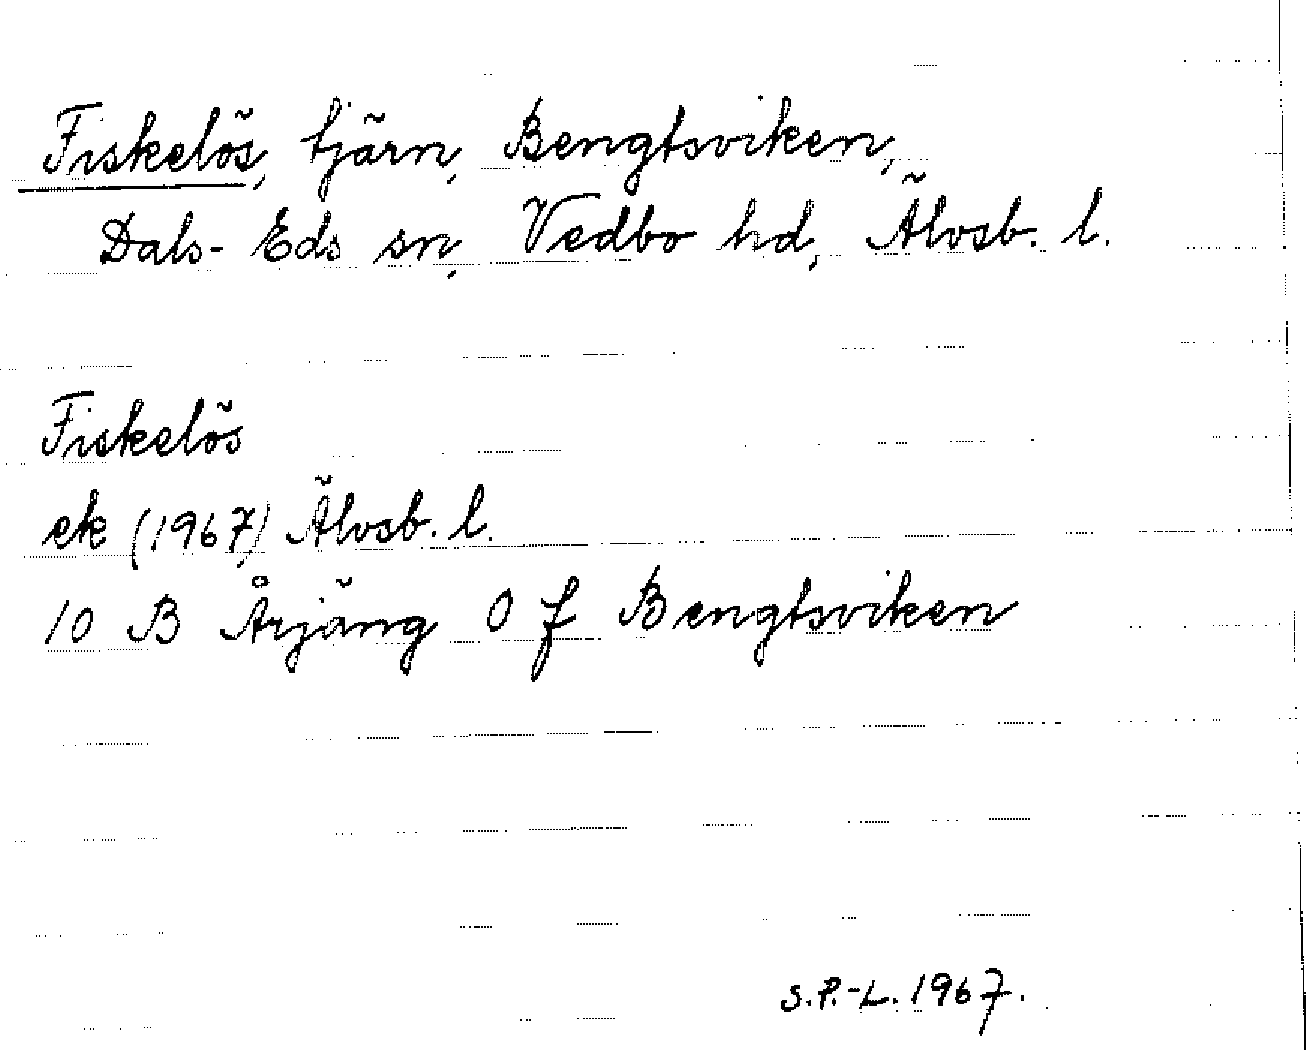 Fiskelös, tjärn, Bengtsviken,
Dals-Eds sn, Vedbo hd, Älvsb. l.
Fiskelös
ek (1967) Älvsb. l.
10 B Årjäng O f Bengtsviken
S.P.-L. 1967.